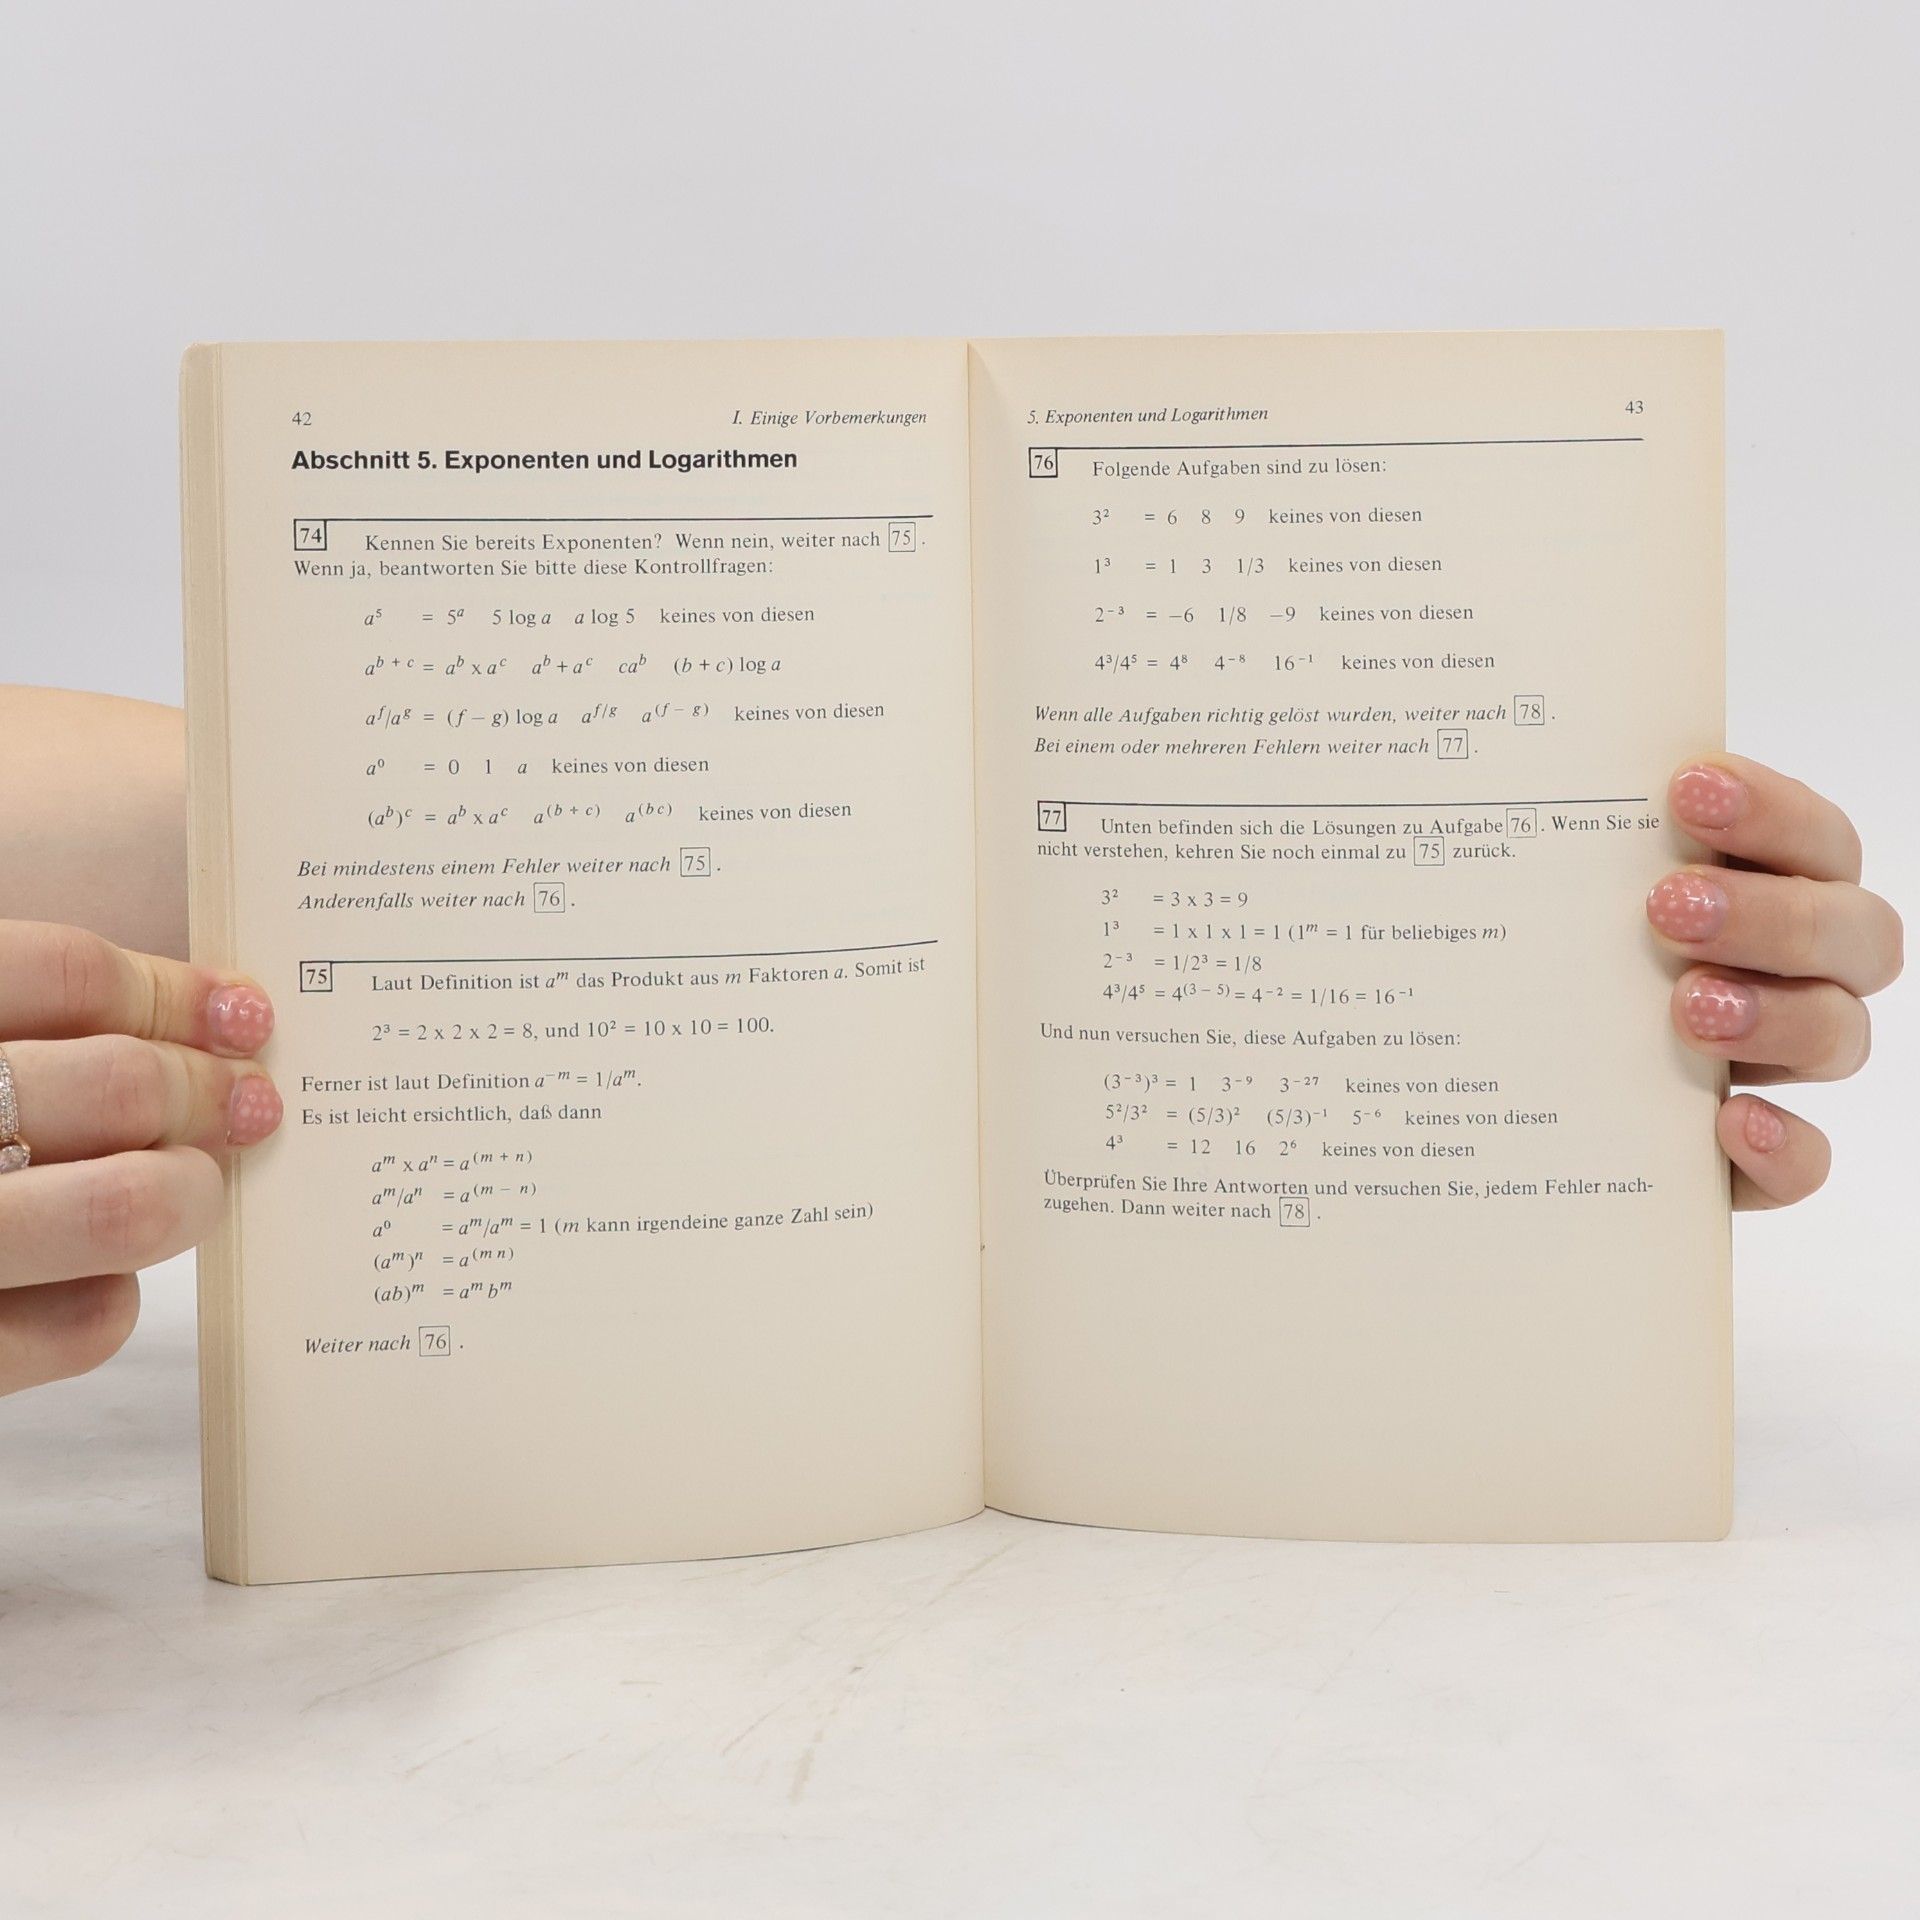 42 I. Einige Vorbemerkungen
Abschnitt 5. Exponenten und Logarithmen
74 Kennen Sie bereits Exponenten? Wenn nein, weiter nach 75 .
Wenn ja, beantworten Sie bitte diese Kontrollfragen:
a⁵ = 5ᵃ 5 log a a log 5 keines von diesen
a^{b + c} = a^b x a^c a^b + a^c ca^b (b + c) log a
a^f/a^g = (f – g) log a a^{f/g} a^{(f – g)} keines von diesen
a⁰ = 0 1 a keines von diesen
(a^b)^c = a^b x a^c a^{(b + c)} a^{(bc)} keines von diesen
Bei mindestens einem Fehler weiter nach 75 .
Anderenfalls weiter nach 76 .
75 Laut Definition ist a^m das Produkt aus m Faktoren a. Somit ist
2³ = 2 x 2 x 2 = 8, und 10² = 10 x 10 = 100.
Ferner ist laut Definition a^{–m} = 1/a^m.
Es ist leicht ersichtlich, daß dann
a^m x a^n = a^{(m + n)}
a^m/a^n = a^{(m – n)}
a⁰ = a^m/a^m = 1 (m kann irgendeine ganze Zahl sein)
(a^m)^n = a^{(m n)}
(ab)^m = a^m b^m
Weiter nach 76 .
5. Exponenten und Logarithmen 43
76 Folgende Aufgaben sind zu lösen:
3² = 6 8 9 keines von diesen
1³ = 1 3 1/3 keines von diesen
2⁻³ = –6 1/8 –9 keines von diesen
4³/4⁵ = 4⁸ 4⁻⁸ 16⁻¹ keines von diesen
Wenn alle Aufgaben richtig gelöst wurden, weiter nach 78 .
Bei einem oder mehreren Fehlern weiter nach 77 .
77 Unten befinden sich die Lösungen zu Aufgabe 76 . Wenn Sie sie
nicht verstehen, kehren Sie noch einmal zu 75 zurück.
3² = 3 x 3 = 9
1³ = 1 x 1 x 1 = 1 (1^m = 1 für beliebiges m)
2⁻³ = 1/2³ = 1/8
4³/4⁵ = 4^{(3 – 5)} = 4⁻² = 1/16 = 16⁻¹
Und nun versuchen Sie, diese Aufgaben zu lösen:
(3⁻³)³ = 1 3⁻⁹ 3⁻²⁷ keines von diesen
5²/3² = (5/3)² (5/3)⁻¹ 5⁻⁶ keines von diesen
4³ = 12 16 2⁶ keines von diesen
Überprüfen Sie Ihre Antworten und versuchen Sie, jedem Fehler nach-
zugehen. Dann weiter nach 78 .